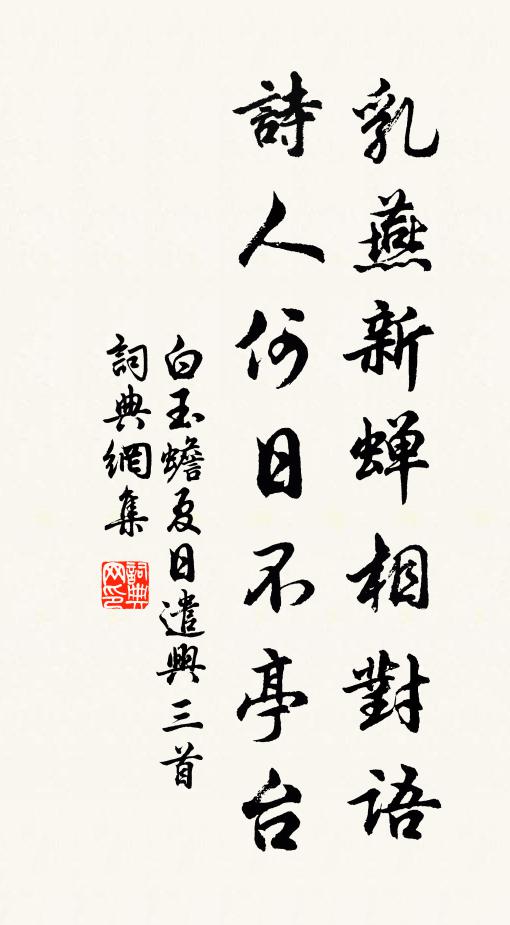 乳燕新蝉相對語
詩人何日不亭台
白玉蟾夏日遣興三首
詞典網集
詞典网印